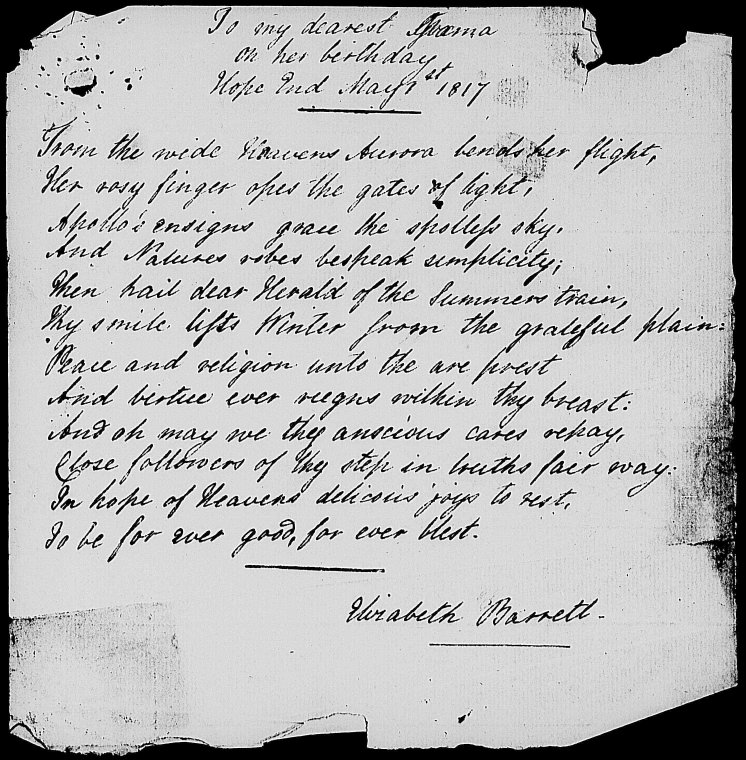 To my dearest Gxama
on her birthday
Hope End May 1st 1817
From the wide Heavens Aurora bends her flight,
Her rosy finger opes the gates of light,
Apollo's ensigns grace the spotless sky.
And Natures robes bespeak simplicity;
Then hail dear Herald of the Summers train,
Thy smile lifts Winter from the grateful plain:
Peace and religion unto the are prest
And virtue ever reigns within thy breast:
And oh may we thy anscious cares repay,
Close followers of thy step in truths fair way:
In hope of Heavens delicous joys to rest,
To be for ever good, for ever blest.
Elizabeth Barrett-